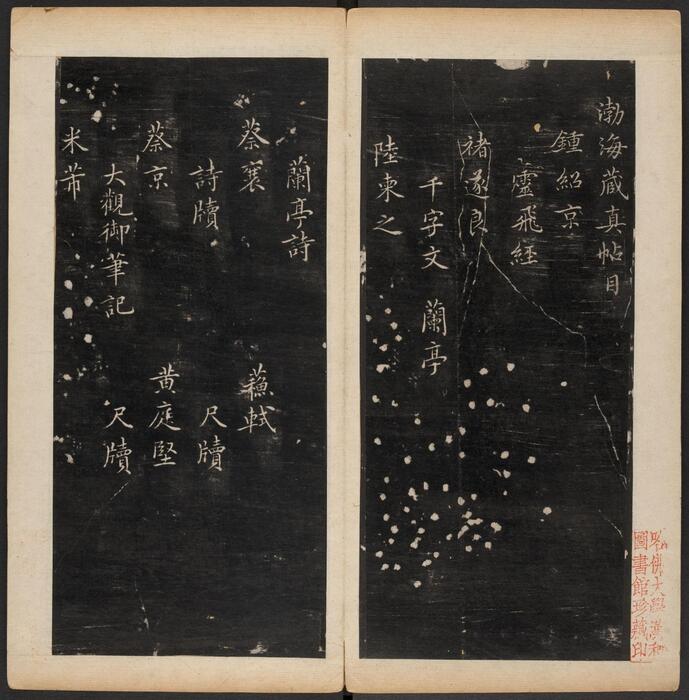 渤海蔵真帖目
鍾紹京
靈飛經
褚遂良
千字文　蘭亭
陸柬之
蘭亭詩
蔡襄　蘓軾
詩牘　尺牘
蔡京　黄庭堅
大觀御筆記　尺牘
米芾
哈佛大學漢和
圖書館珍藏印